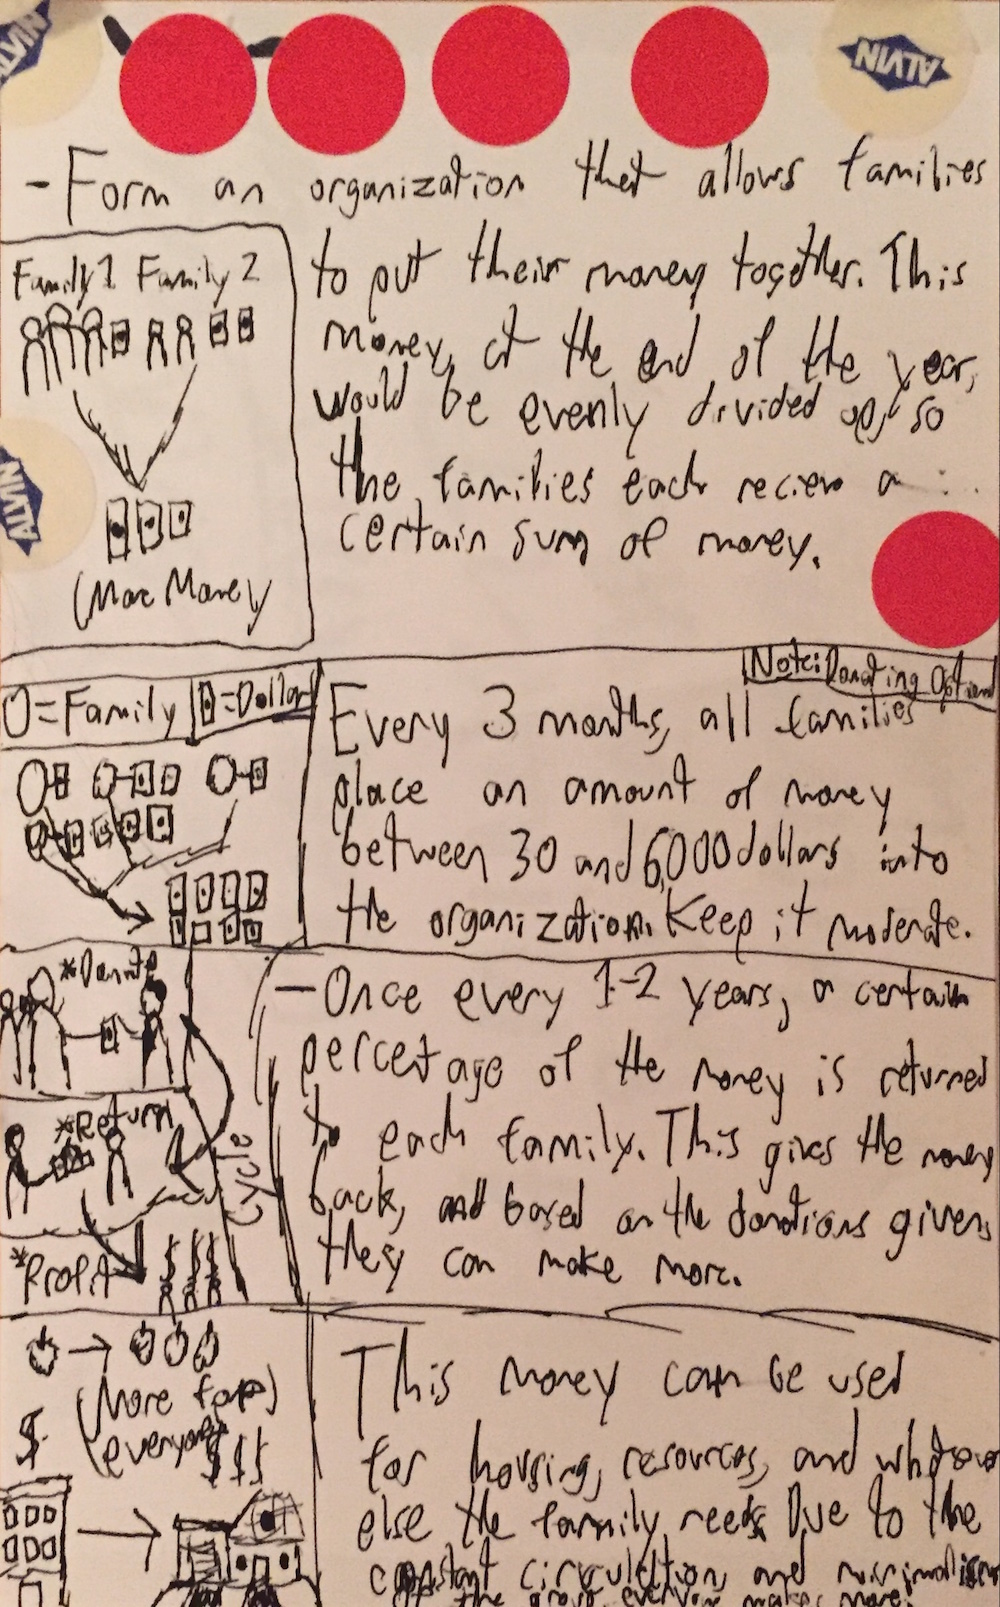 ALVIN
ALVIN
- Form an organization that allows families
to put their money together. This
money, at the end of the year,
would be evenly divided up, so
the families each reciev a
certain sum of money.
Family 1 Family 2
(More Money
ALVIN
Note: Donating Option
O=Family =Dollar
Every 3 months, all families
place an amount of money
between 30 and 6,000 dollars into
the organization. Keep it moderate.
*Donate
*Return
Cycle
*Profit
- Once every 1-2 years, a certain
percentage of the money is returned
to each family. This gives the money
back, and based on the donations given,
they can make more.
(More for
everyone)
$ $$$
This money can be used
for housing, resources, and whatever
else the family needs. Due to the
constant circulation, and
of the group, everyone makes more.